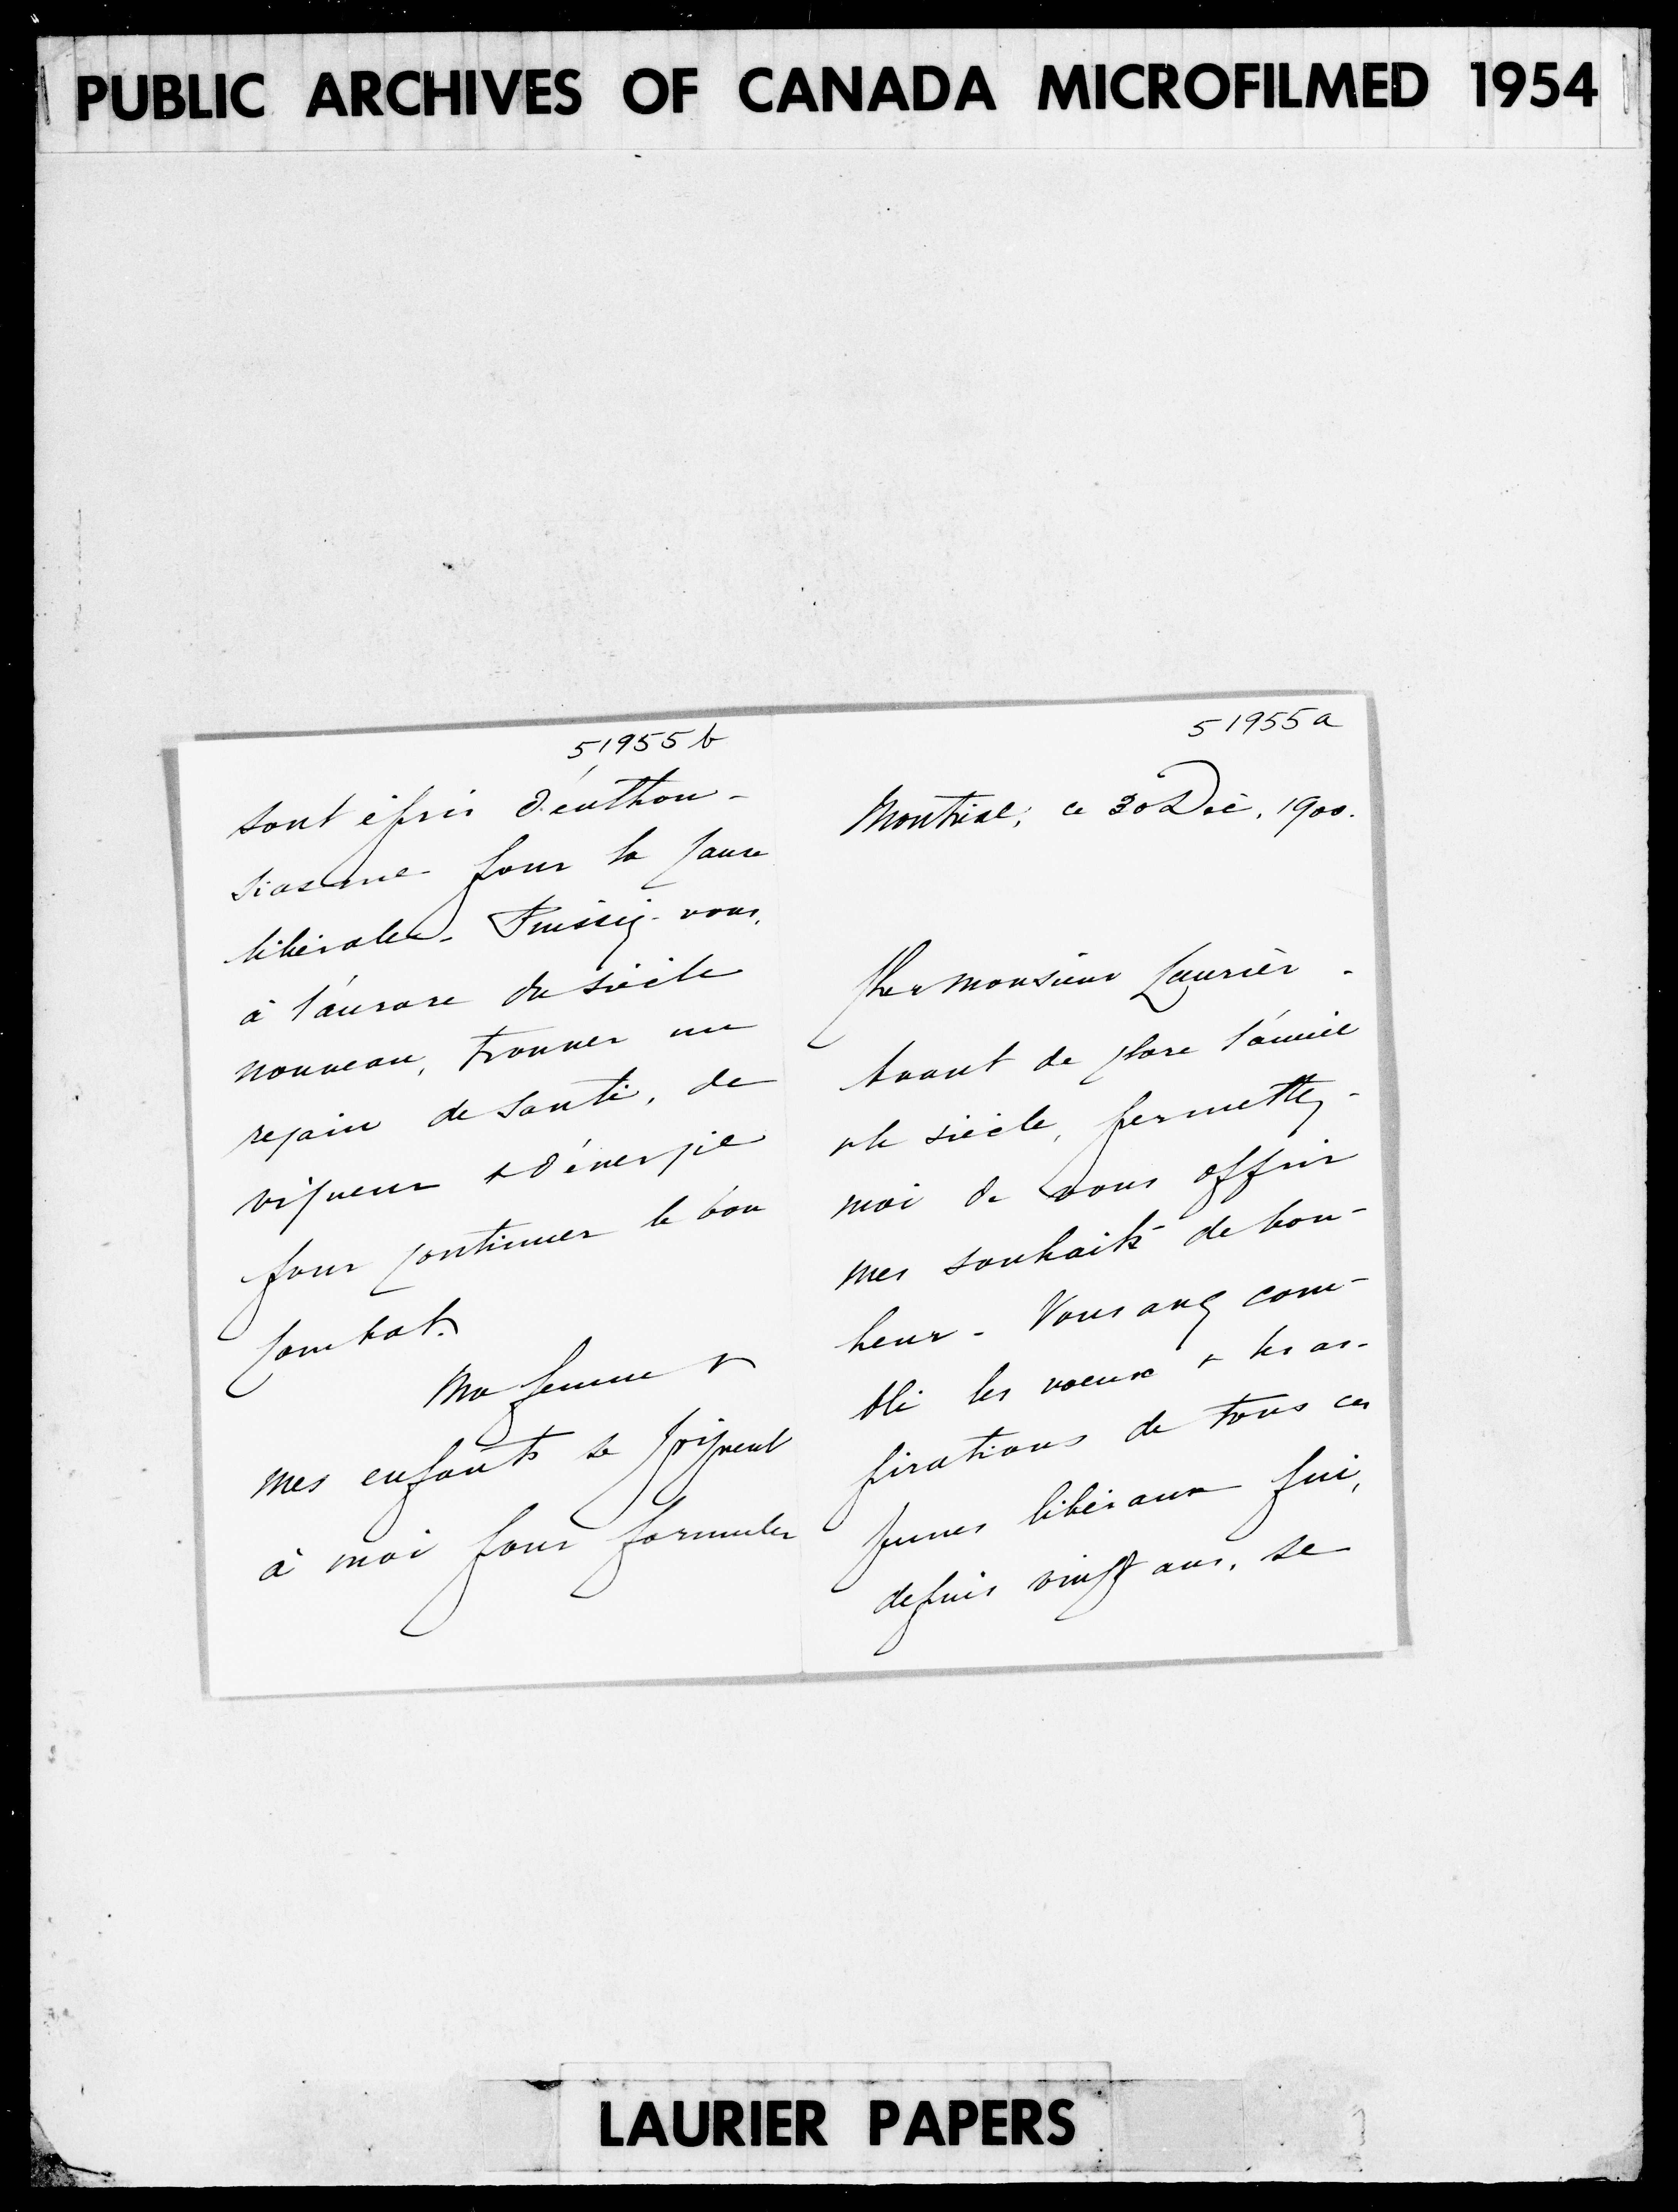 PUBLIC ARCHIVES OF CANADA MICROFILMED 1954
51955 a
Montréal, ce 30 Déc. 1900.
Cher Monsieur Laurier -
Avant de clore l'année
& le siècle, permettez-
moi de vous offrir
mes souhaits de bon-
heur - Vous avez com-
blé les voeux & les as-
pirations de tous ces
jeunes libéraux qui,
depuis vingt ans, se
51955 b
sont épris d'enthou-
siasme pour la cause
libérale - Puissiez-vous,
à l'aurore du siècle
nouveau, trouver un
regain de santé, de
vigueur & d'énergie
pour continuer le bon
combat.
Ma femme &
mes enfants se joignent
à moi pour formuler
LAURIER PAPERS